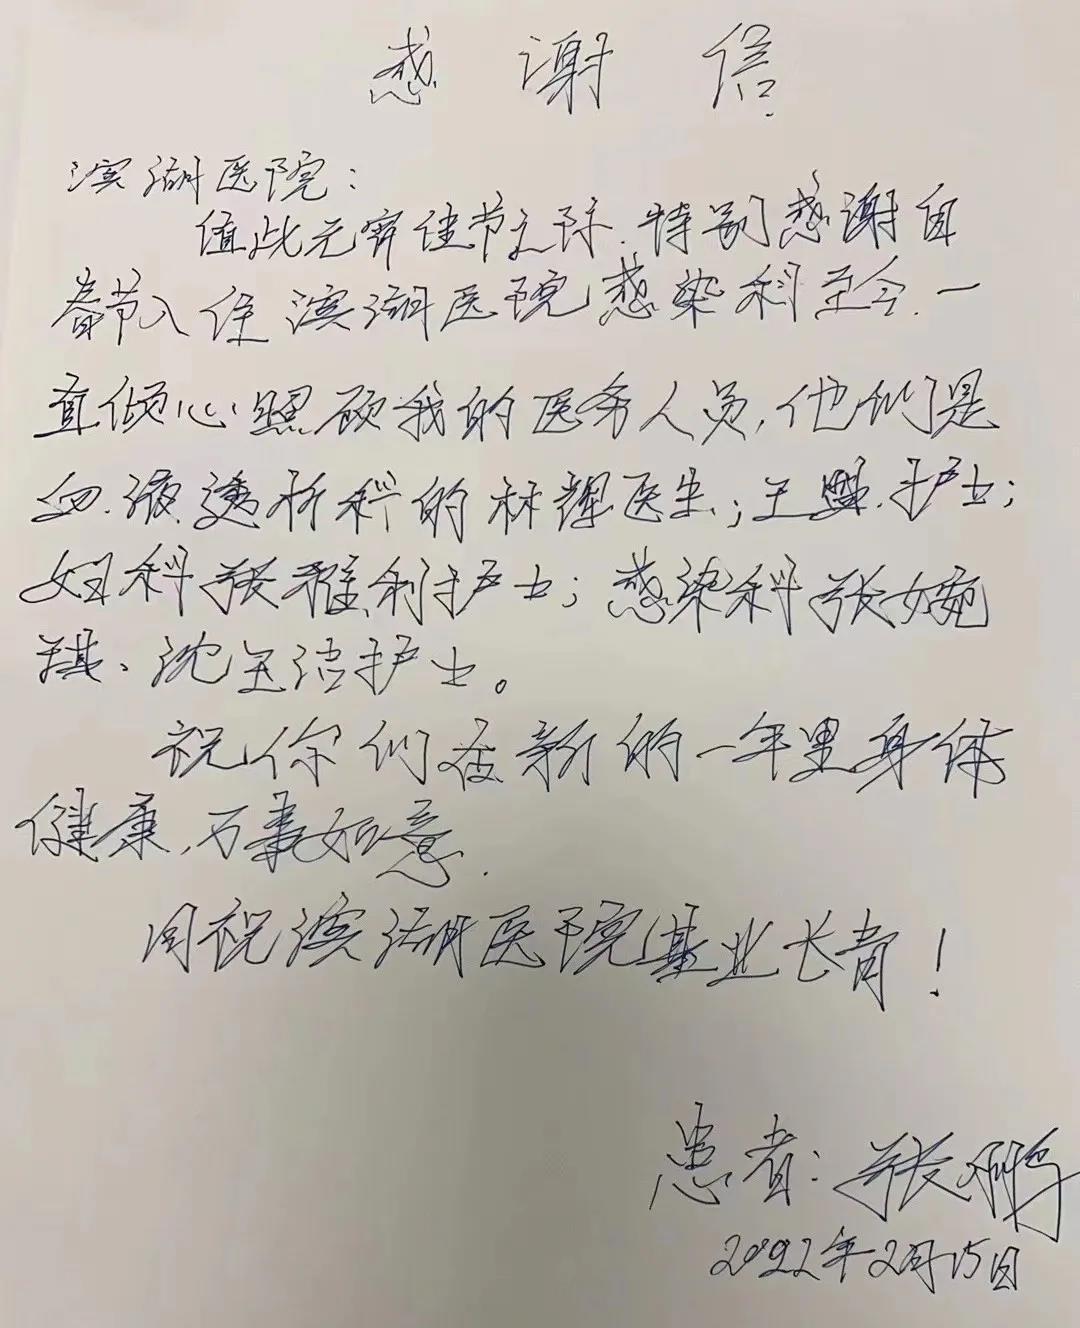 感谢信
滨湖医院：
值此元宵佳节之际.特别感谢自
春节入住滨湖医院感染科至今.一
直倾心照顾我的医务人员,他们是
血液透析科的林辉医生;王盟护士;
妇科张雅利护士;感染科张婉
琪、沈玉洁护士。
祝你们在新的一年里身体
健康,万事如意.
同祝滨湖医院基业长青!
患者:张鹏
2022年2月15日